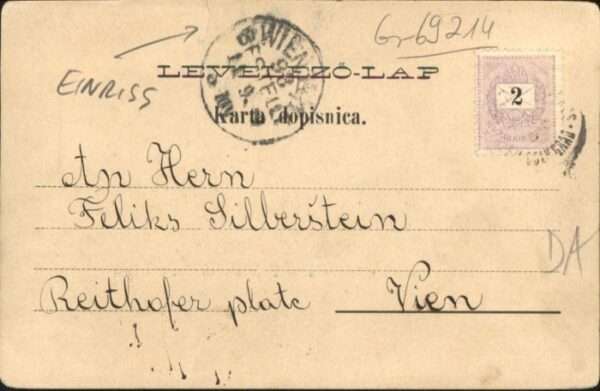 Gr-69214
EINRISS
WIEN
LEVELEZŐ-LAP
2
Karta dopisnica.
An Hern
Feliks Silberstein
DA
Reithofer platc Vien